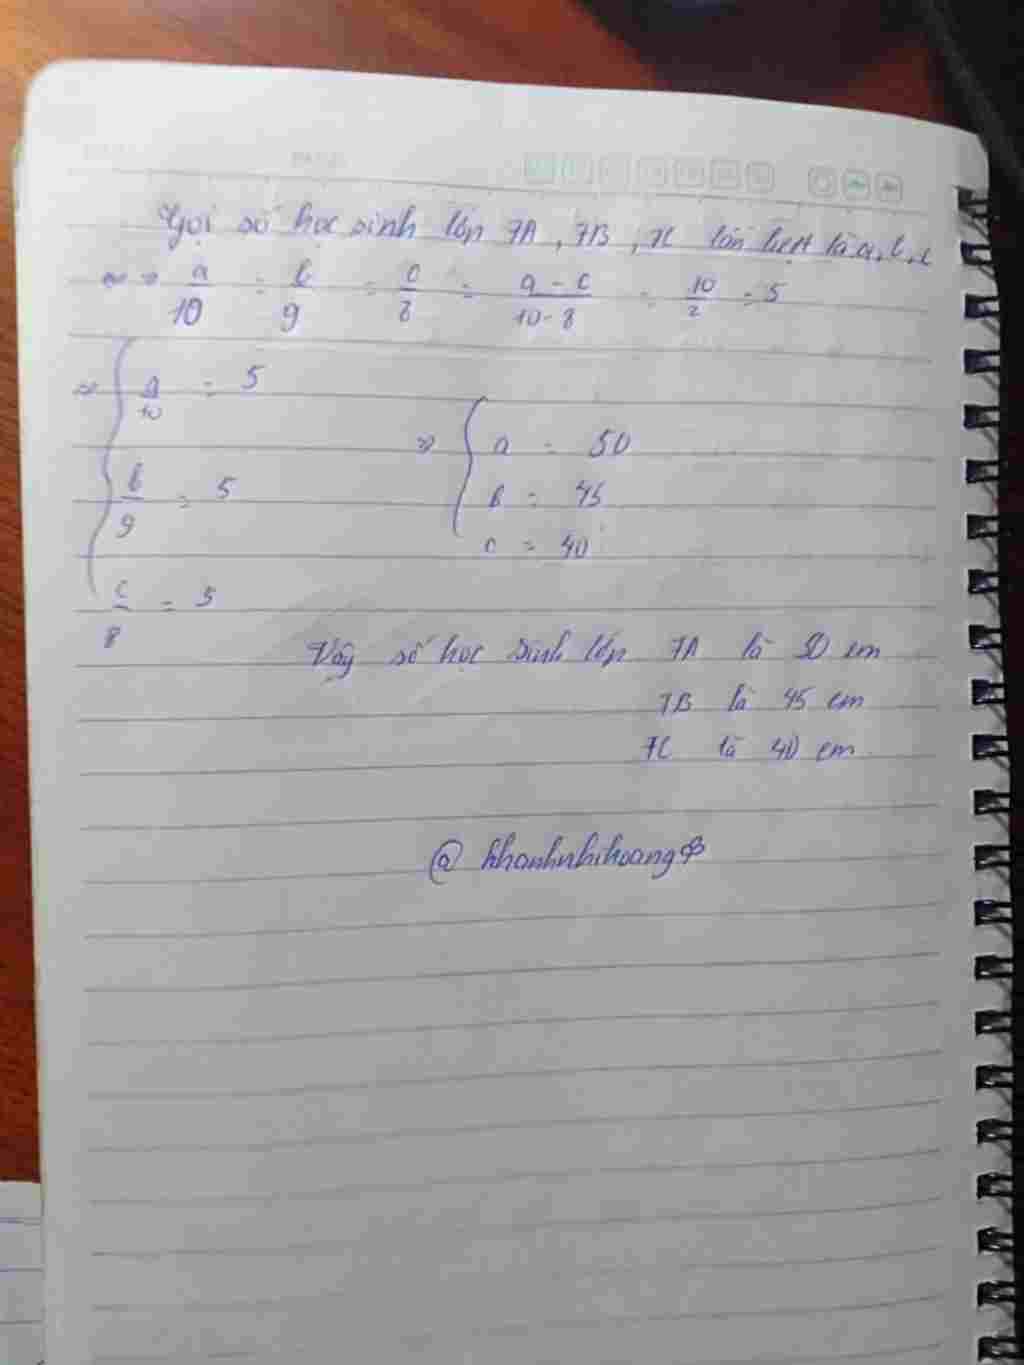 Gọi số học sinh lớp 7A, 7B, 7C lần lượt là a, b, c
=> a/10 = b/9 = c/8 = a - c/10 - 8 = 10/2 = 5
=> { a/10 = 5
b/9 = 5
c/8 = 5
=> { a = 50
b = 45
c = 40
Vậy số học sinh lớp 7A là 50 em
7B là 45 em
7C là 40 em
@ khanhnhihoang